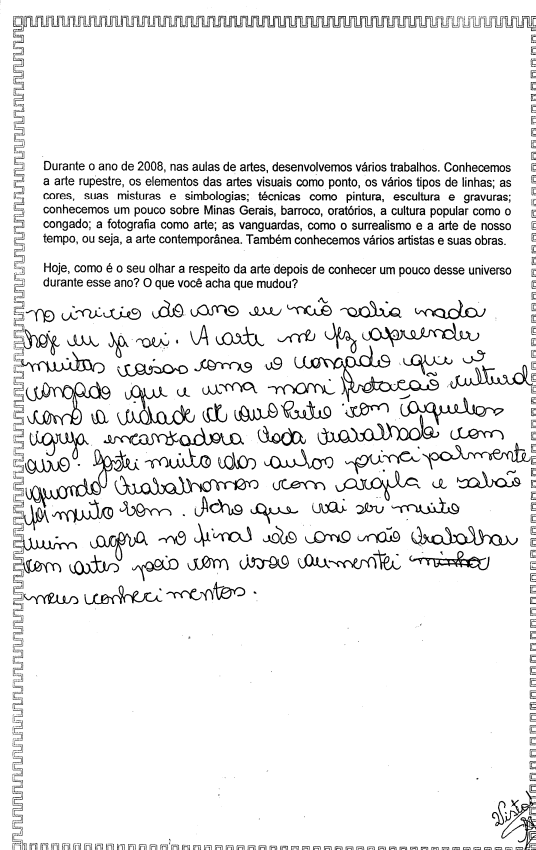 Durante o ano de 2008, nas aulas de artes, desenvolvemos vários trabalhos. Conhecemos
a arte rupestre, os elementos das artes visuais como ponto, os vários tipos de linhas; as
cores, suas misturas e simbologias; técnicas como pintura, escultura e gravuras;
conhecemos um pouco sobre Minas Gerais, barroco, oratórios, a cultura popular como o
congado; a fotografia como arte; as vanguardas, como o surrealismo e a arte de nosso
tempo, ou seja, a arte contemporânea. Também conhecemos vários artistas e suas obras.
Hoje, como é o seu olhar a respeito da arte depois de conhecer um pouco desse universo
durante esse ano? O que você acha que mudou?
no inicio do ano eu não sabia nada
hoje eu ja sei. A arte me fez apreender
muitas coisas como o congado que o
congado que e uma mani festacão cultural
como a cidade de ouro Preto com aquelas
igreja encantadora toda trabalhada com
ouro. Gostei muito das aulas principalmente
quando trabalhamos com argila e sabão
foi muito bom. Acho que vai ser muito
ruim agora no final do ano não trabalhar
com artes pois com isso aumentei minha
meus conheci mentos.
Visto